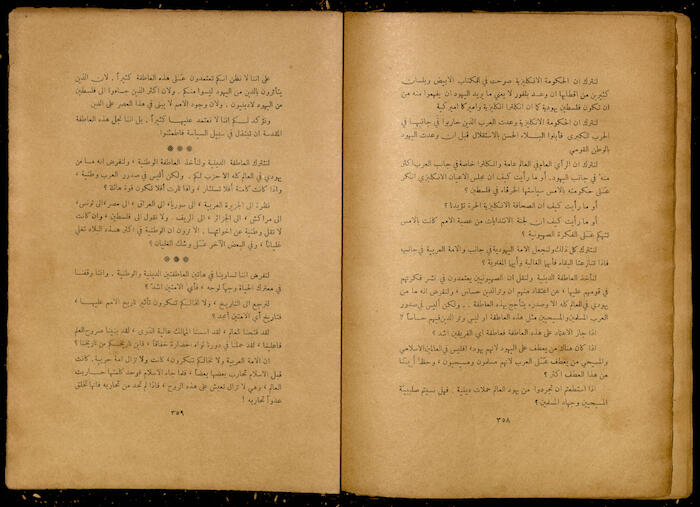 لنترك ان الحكومة الانكليزية صرحت في الكتاب الابيض وبلسان
كثيرين من اقطابها ان وعد بلفور لا يعني ما يريد اليهود ان يفهموا منه من
ان تكون فلسطين يهودية كما ان انكلترا انكليزية واميركا اميركية
لنترك ان الحكومة الانكليزية وعدت العرب الذين حاربوا في جانبها في
الحرب الكبرى فأبلوا البلاء الحسن بالاستقلال قبل ان وعدت اليهود
بالوطن القومي
لنترك ان الرأي العام في العالم عامة وانكلترا خاصة في جانب العرب اكثر
منه في جانب اليهود. أو ما رأيت كيف ان مجلس الاعيان الانكليزي انكر
على حكومته بالامس سياستها الخرقاء في فلسطين؟
أو ما رأيت كيف ان الصحافة الانكليزية الحرة تؤيدنا؟
أو ما رأيت كيف ان لجنة الانتدابات من عصبة الامم كانت بالامس
تتهكم على الفكرة الصهيونية؟
لنترك كل ذلك ولنجعل الامة اليهودية في جانب والامة العربية في جانب
فاذا تنازعتا البقاء فأيها الغالبة وأيها المغلوبة؟
لنأخذ العاطفة الدينية ولنقل ان الصهيونيين يعتمدون في نشر فكرتهم
في قومهم عليها، عن اعتقاد منهم ان وتر الدين حساس، ولنفرض انه ما من
يهودي في العالم كله الا وصدره يتأجج بهذه العاطفة .. ولكن أليس في صدور
العرب المسلمين والمسيحيين مثل هذه العاطفة او ليس وتر الدين فيهم حساساً؟
اذا جاز الاعتماد على هذه العاطفة فعاطفة اي الفريقين اشد؟
اذا كان هناك من يعطف على اليهود لانهم يهود، افليس في العالمين الاسلامي
والمسيحي من يعطف على العرب لانهم مسلمون ومسيحيون، وحظ أينا
من هذا العطف اكثر؟
اذا استطعتم ان تجردوا من يهود العالم حملات دينية. فهل نسيتم صليبية
المسيحيين وجهاد المسلمين؟
٣٥٨
على اننا لا نظن انكم تعتمدون على هذه العاطفة كثيراً، لان الذين
يتأثرون بالدين من اليهود ليسوا منكم. ولان اكثر الذين جاءوا الى فلسطين
من اليهود لادينيون. ولان وجود الامم لا يبنى في هذا العصر على الدين
ونؤكد لكم اننا لا نعتمد عليها كثيراً، بل اننا نجل هذه العاطفة
المقدسة ان تستغل في سبيل السياسة فاطمئنوا
* * *
لنترك العاطفة الدينية ولنأخذ العاطفة الوطنية، ولنفرض انه ما من
يهودي في العالم كله الا حزب لكم. ولكن أليس في صدور العرب وطنية،
واذا كانت كامنة أفلا تستثار، واذا ثارت أفلا تكون قوة هائلة؟
نظرة الى الجزيرة العربية، الى سوريا، الى العراق، الى مصر، الى تونس،
الى مراكش، الى الجزائر، الى الريف. ولا نقول الى فلسطين، وان كانت
لا تقل وطنية عن اخواتها. الا ترون ان الوطنية في اكثر هذه البلاد تغلي
غلياناً، وفي البعض الآخر على وشك الغليان؟
* * *
لنفرض اننا تساوينا في هاتين العاطفتين الدينية والوطنية. واننا وقفنا
في معترك الحياة وجهاً لوجه، فأي الامتين أشد؟
لنرجع الى التاريخ، ولا نخالكم تنكرون تأثير تاريخ الامم عليها،
فتاريخ أي الامتين أمجد؟
لقد فتحنا العالم، لقد اسسنا الممالك عالية الذرى، لقد بنينا صروح العلم
فأعلينا، لقد حملنا في دورنا لواء الحضارة خفاقاً، فاين تاريخكم من تاريخنا؟
ان الامة العربية ولا نخالكم تنكرون، كانت ولا تزال امة حربية. كانت
قبل الاسلام تحارب بعضها بعضاً، فلما جاء الاسلام فوحد كلمتها حاربت به
العالم، وهي لا تزال تعيش على هذه الروح، فاذا لم تجد من تحاربه فانها تخلق
عدواً تحاربه!
٣٥٩